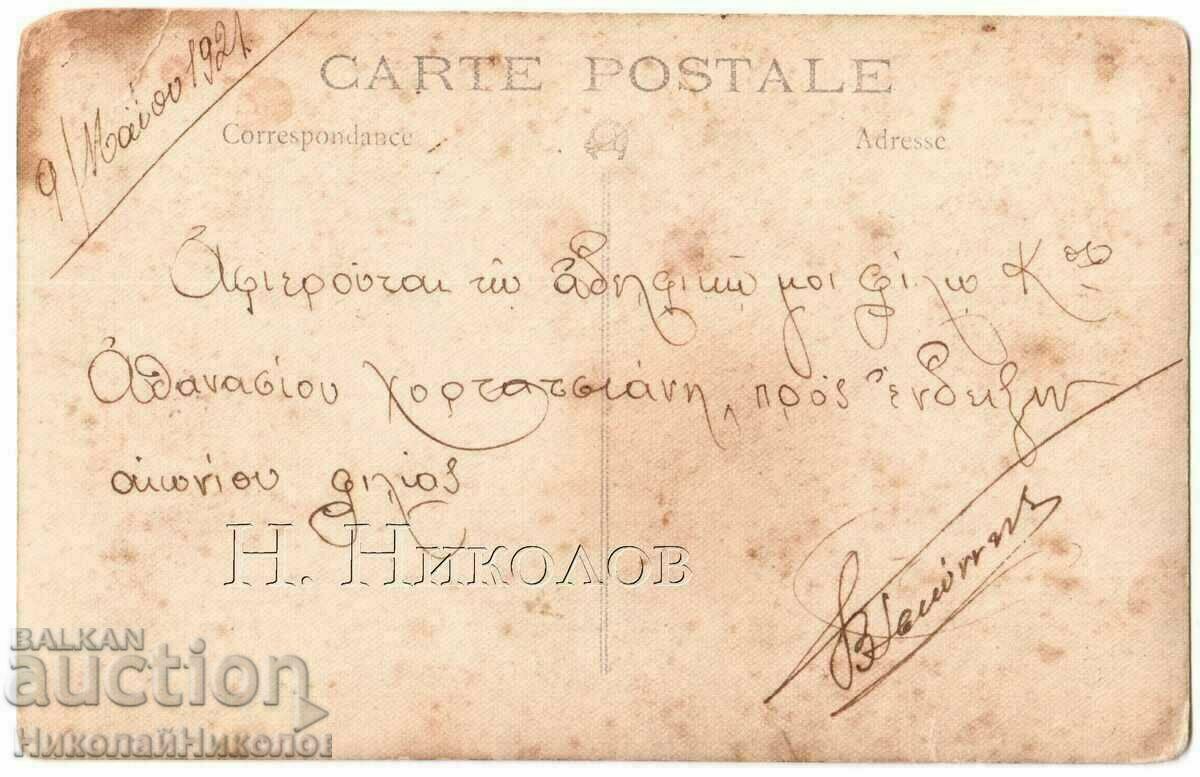 9/Μαΐου 1921.
CARTE POSTALE
Correspondance
Adresse
Ἀφιεροῦται τῷ ἀδελφικῷ μοι φίλῳ Κῳ
Ἀθανασίου Χορτατσιάνη, πρὸς ἔνδειξιν
αἰωνίου φιλίας
Н. Николов
BALKAN
auction
НиколайНиколов